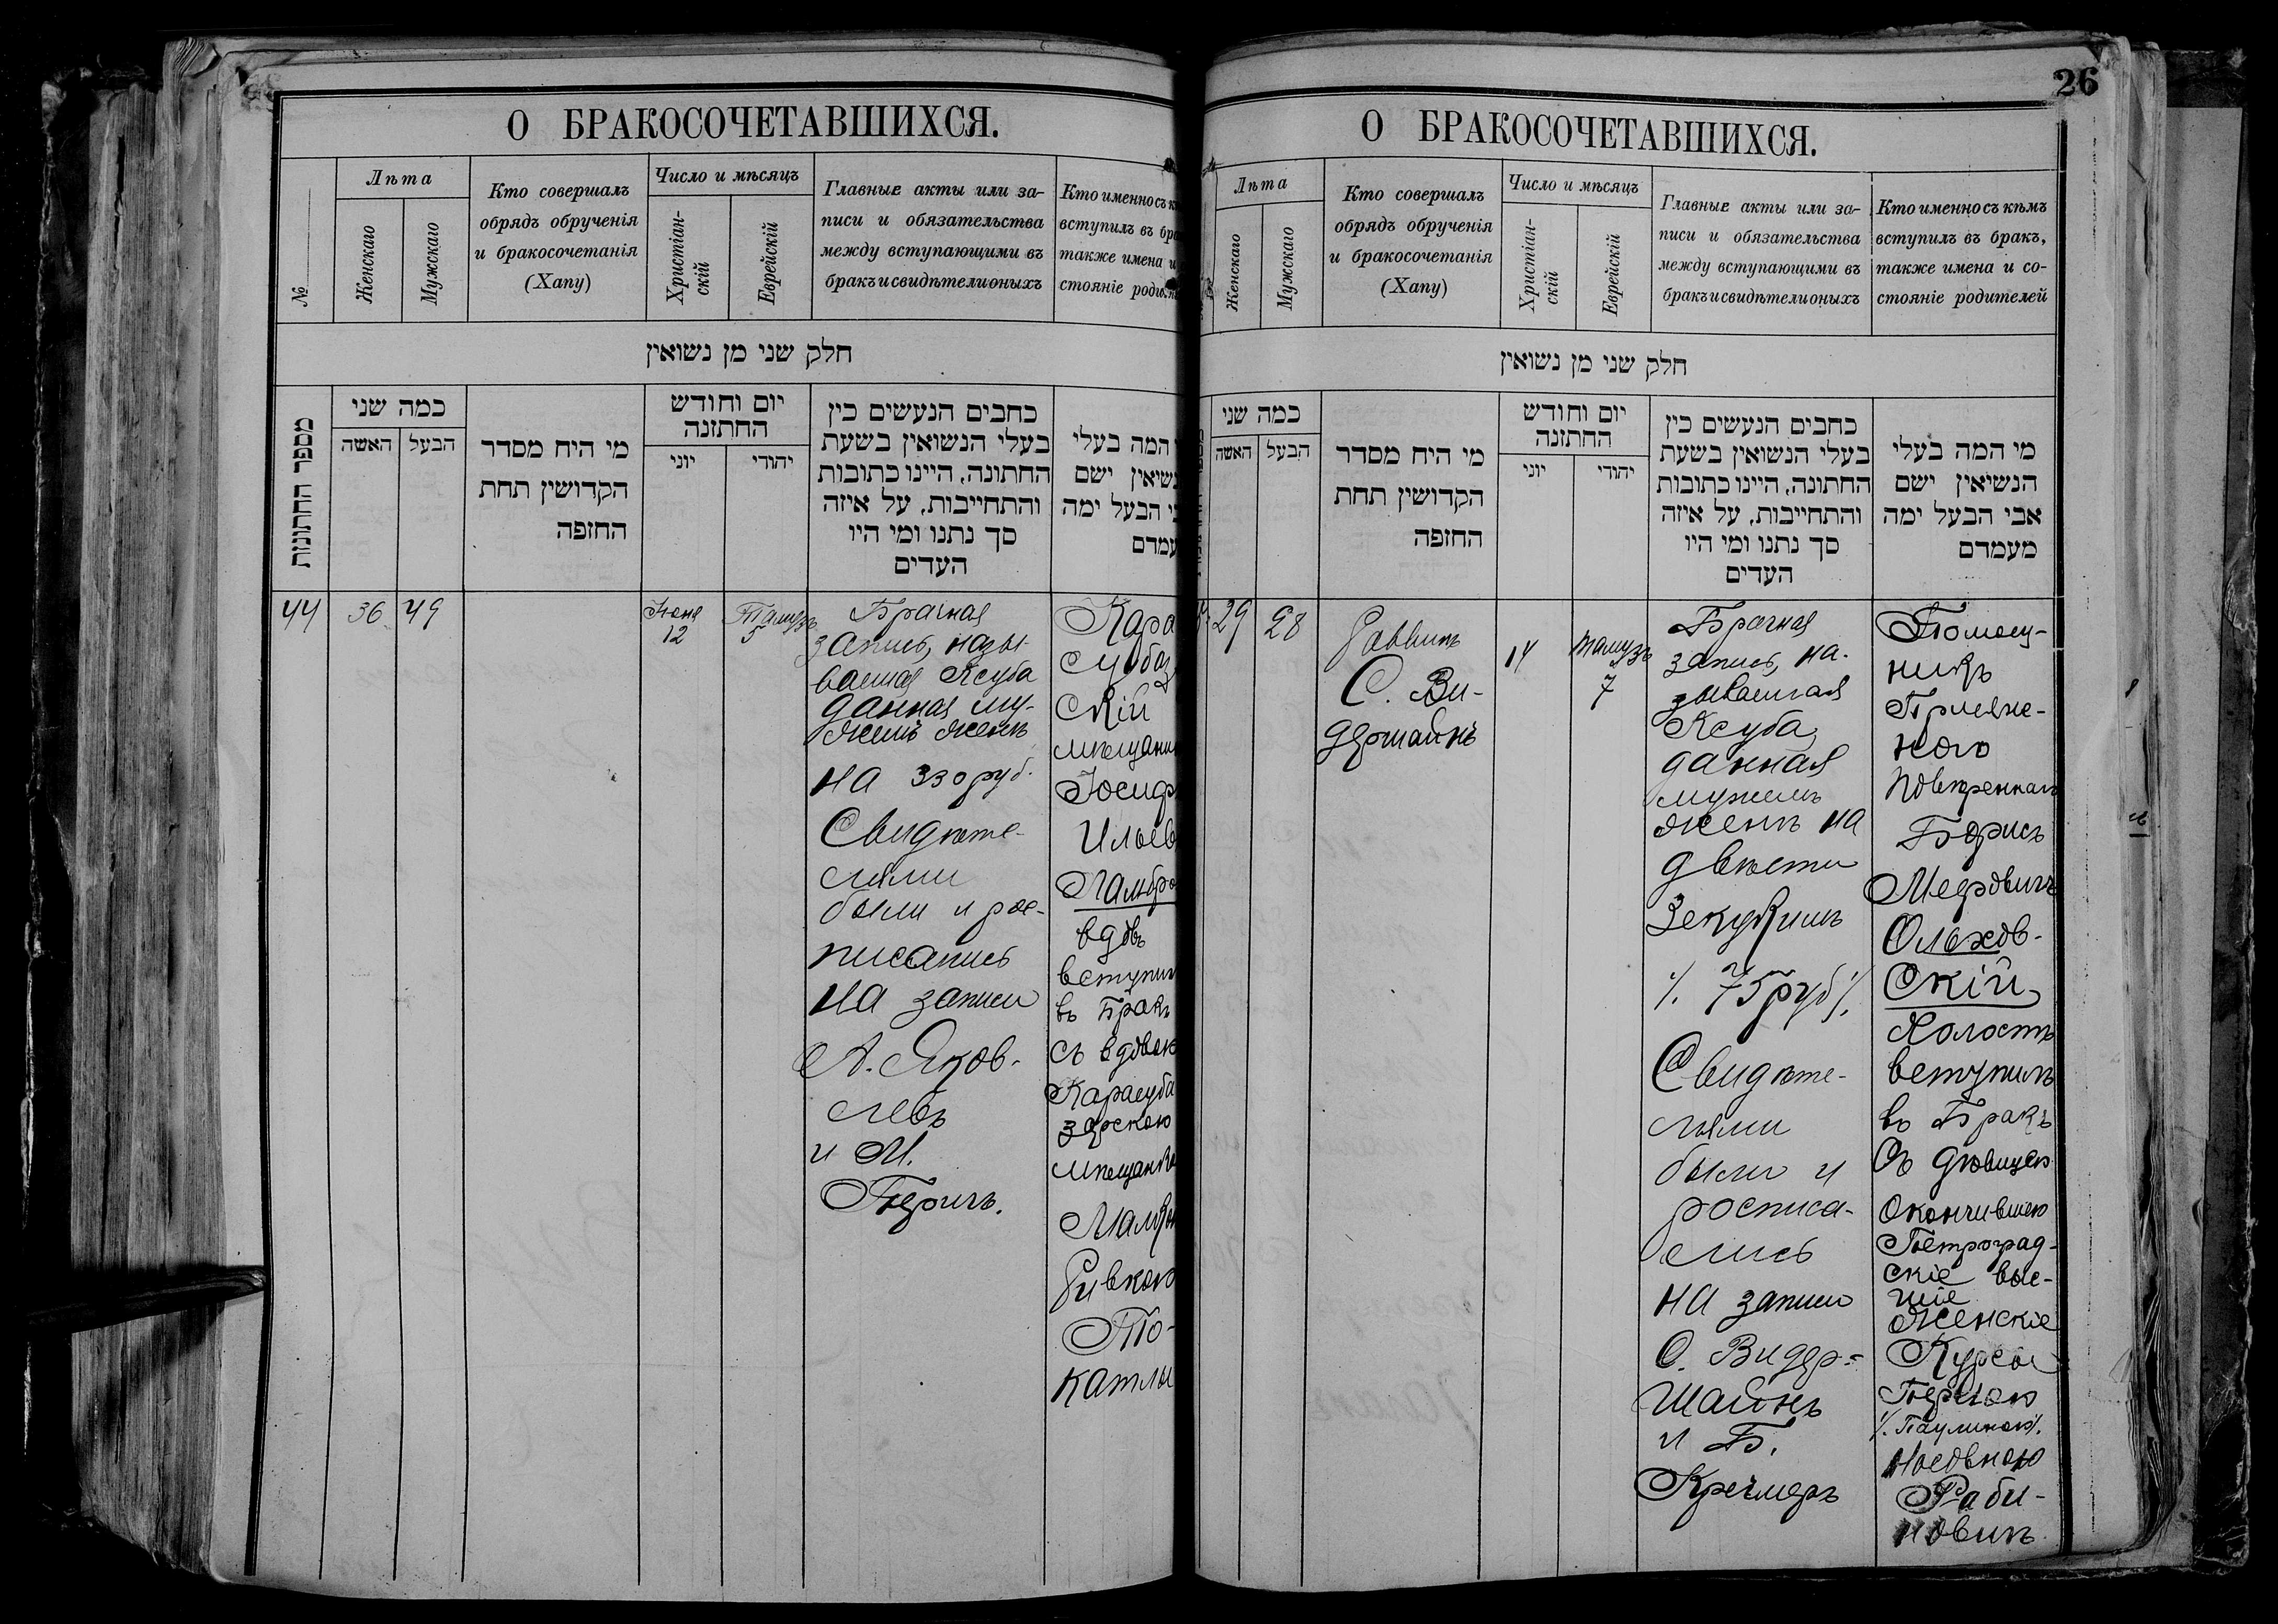 26
О БРАКОСОЧЕТАВШИХСЯ.
№
Лѣта
Женскаго
Мужскаго
Кто совершалъ
обрядъ обрученія
и бракосочетанія
(Хапу)
Число и мѣсяцъ
Христіан-
скій
Еврейскій
Главные акты или за-
писи и обязательства
между вступающими въ
бракъ и свидѣтели оныхъ
Кто именно съ
вступилъ въ
также имена и
стояніе
חלק שני מן נשואין
מספר החתונות
כמה שני
האשה
הבעל
מי היח מסדר
הקדושין תחת
החופה
יום וחודש
החתונה
יוני
יהודי
כתבים הנעשים כין
בעלי הנשואין בשעת
החתונה, היינו כתובות
והתחייבות, על איזה
סך נתנו ומי היו
העדים
המה בעלי
ישם
הבעל ימה
44
36
49
Іюня
12
Тамузъ
5
Брачная
запись, назы-
ваемая Ксуба
данная му-
жемъ женѣ
на 330 руб.
Свидѣте-
лями
были и рос-
писались
на записи
А. Яков-
левъ
и М.
Перичъ.
Кара
субаз
скій
мѣщани
Іосиф
Ильев
Ламбро
вдовъ
вступил
въ бракъ
съ вдовою
Карасуба
зарскою
мѣщанко
Ривкою
То-
катлы
О БРАКОСОЧЕТАВШИХСЯ.
Лѣта
Женскаго
Мужскаго
Кто совершалъ
обрядъ обрученія
и бракосочетанія
(Хапу)
Число и мѣсяцъ
Христіан-
скій
Еврейскій
Главные акты или за-
писи и обязательства
между вступающими въ
бракъ и свидѣтели оныхъ
Кто именно съ кѣмъ
вступилъ въ бракъ,
также имена и со-
стояніе родителей
חלק שני מן נשואין
כמה שני
האשה
הבעל
מי היח מסדר
הקדושין תחת
החופה
יום וחודש
החתונה
יוני
יהודי
כתבים הנעשים כין
בעלי הנשואין בשעת
החתונה, היינו כתובות
והתחייבות, על איזה
סך נתנו ומי היו
העדים
מי המה בעלי
הנשיאין ישם
אבי הבעל ימה
מעמדם
29
28
Раввинъ
С. Ви-
дершайнъ
14
Тамузъ
7
Брачная
запись, на-
зываемая
Ксуба,
данная
мужемъ
женѣ на
двѣсти
Зекукимъ
/. 75 руб /.
Свидѣте-
лями
были и
росписа-
лись
на записи
С. Видер-
шайнъ
и Б.
Креймеръ
Помощ-
никъ
Присяж-
наго
повѣреннаго
Борисъ
Мееровичъ
Ольхов-
скій,
холостъ
вступилъ
въ бракъ
съ дѣвицею
окончившею
Петроград-
скіе выс-
шіе
женскіе
Курсы
Перлею
/. Паулиною /.
Ноевною
Раби-
новичъ